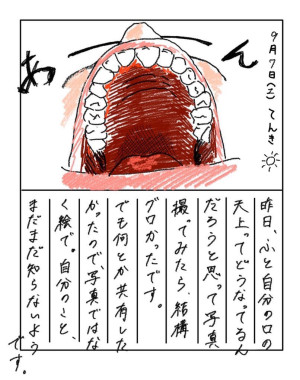 9月7日(土) てんき
あん
昨日、ふと自分の口の
天上ってどうなってるん
だろうと思って写真
撮ってみたら、結構
グロかったです。
でも何とか共有した
かったので、写真ではな
く絵で。自分のこと、
まだまだ知らないよう
です。